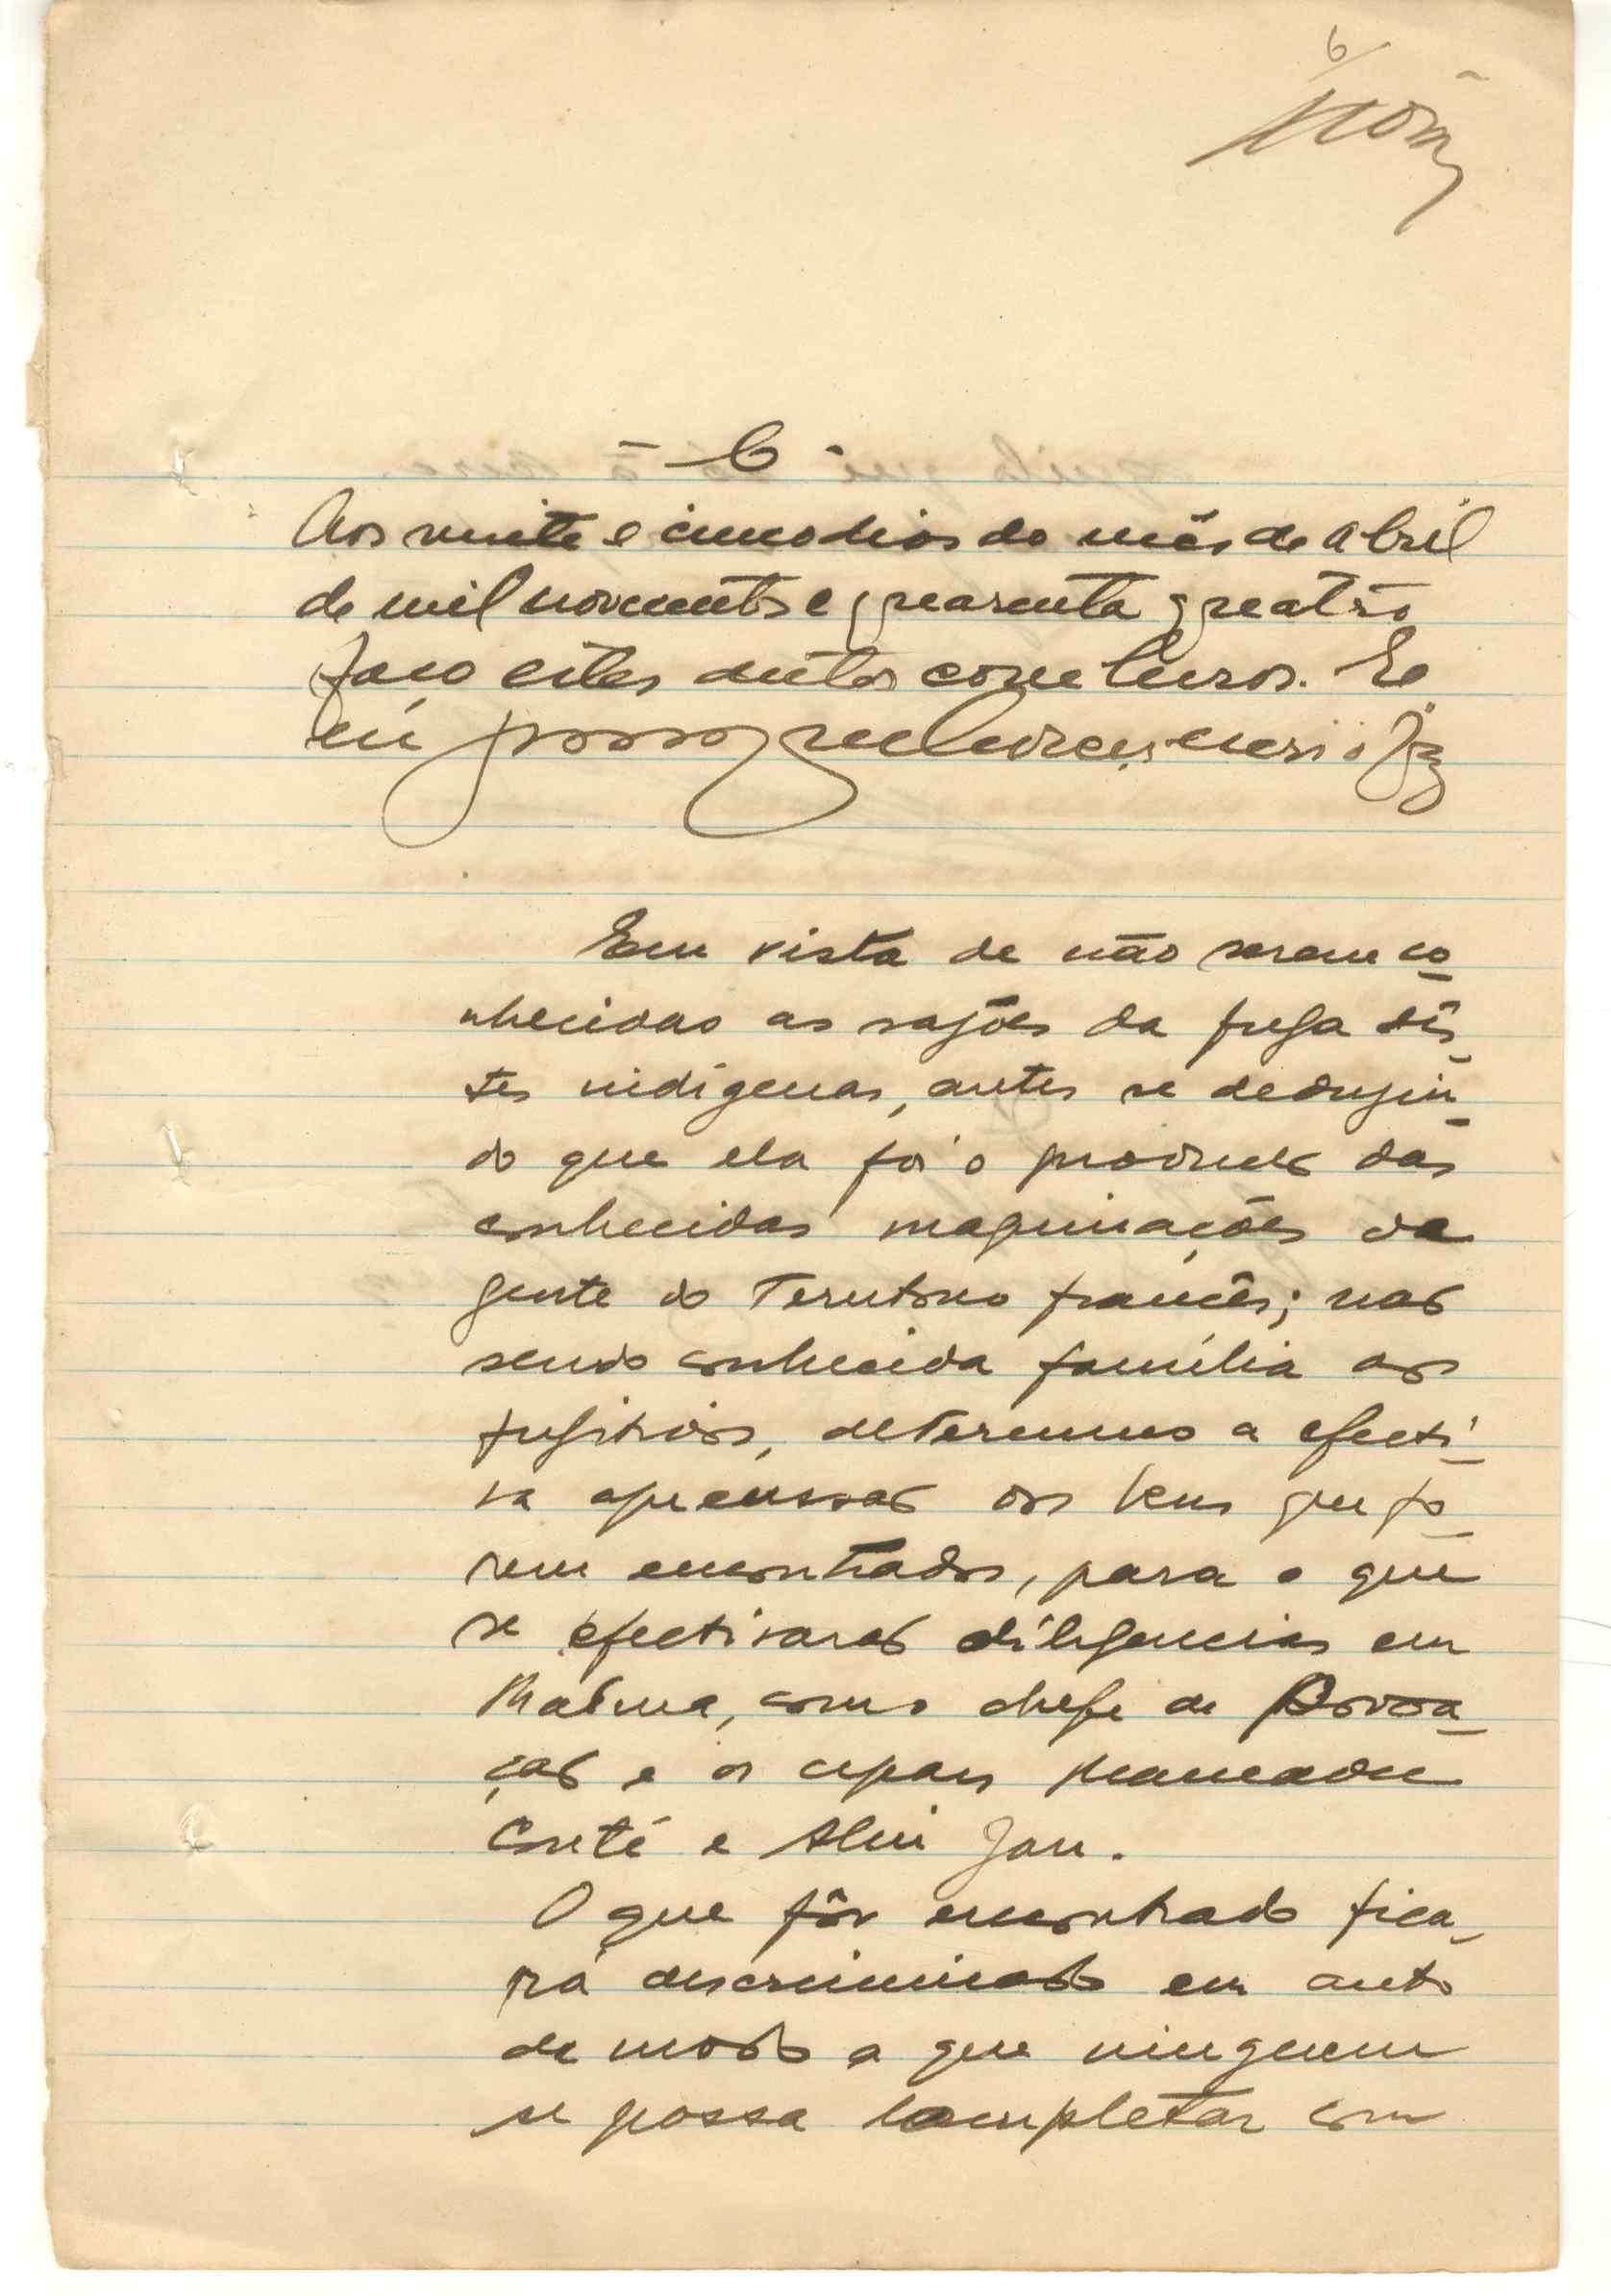 6
- C -
Aos vinte e cinco dias do mês de abril
de mil novecentos e quarenta quatro
faço estes autos conclusos. E
eu escrivão o fiz
Em vista de não serem co-
nhecidas as rasões da fuga dês-
tes indígenas, antes se deduzin-
do que ela foi o produto das
conhecidas maquinações da
gente do Território francês; não
sendo conhecida família aos
fugitivos, determino a efecti-
va apreensão dos bens que fo-
rem encontrados, para o que
se efectivarão diligencias em
como chefe de Povoa-
ção e os cipais Mamadu
Conté e Alui Jau.
O que fôr encontrado fica-
rá descriminado em auto
de modo a que ninguem
se possa locupletar com